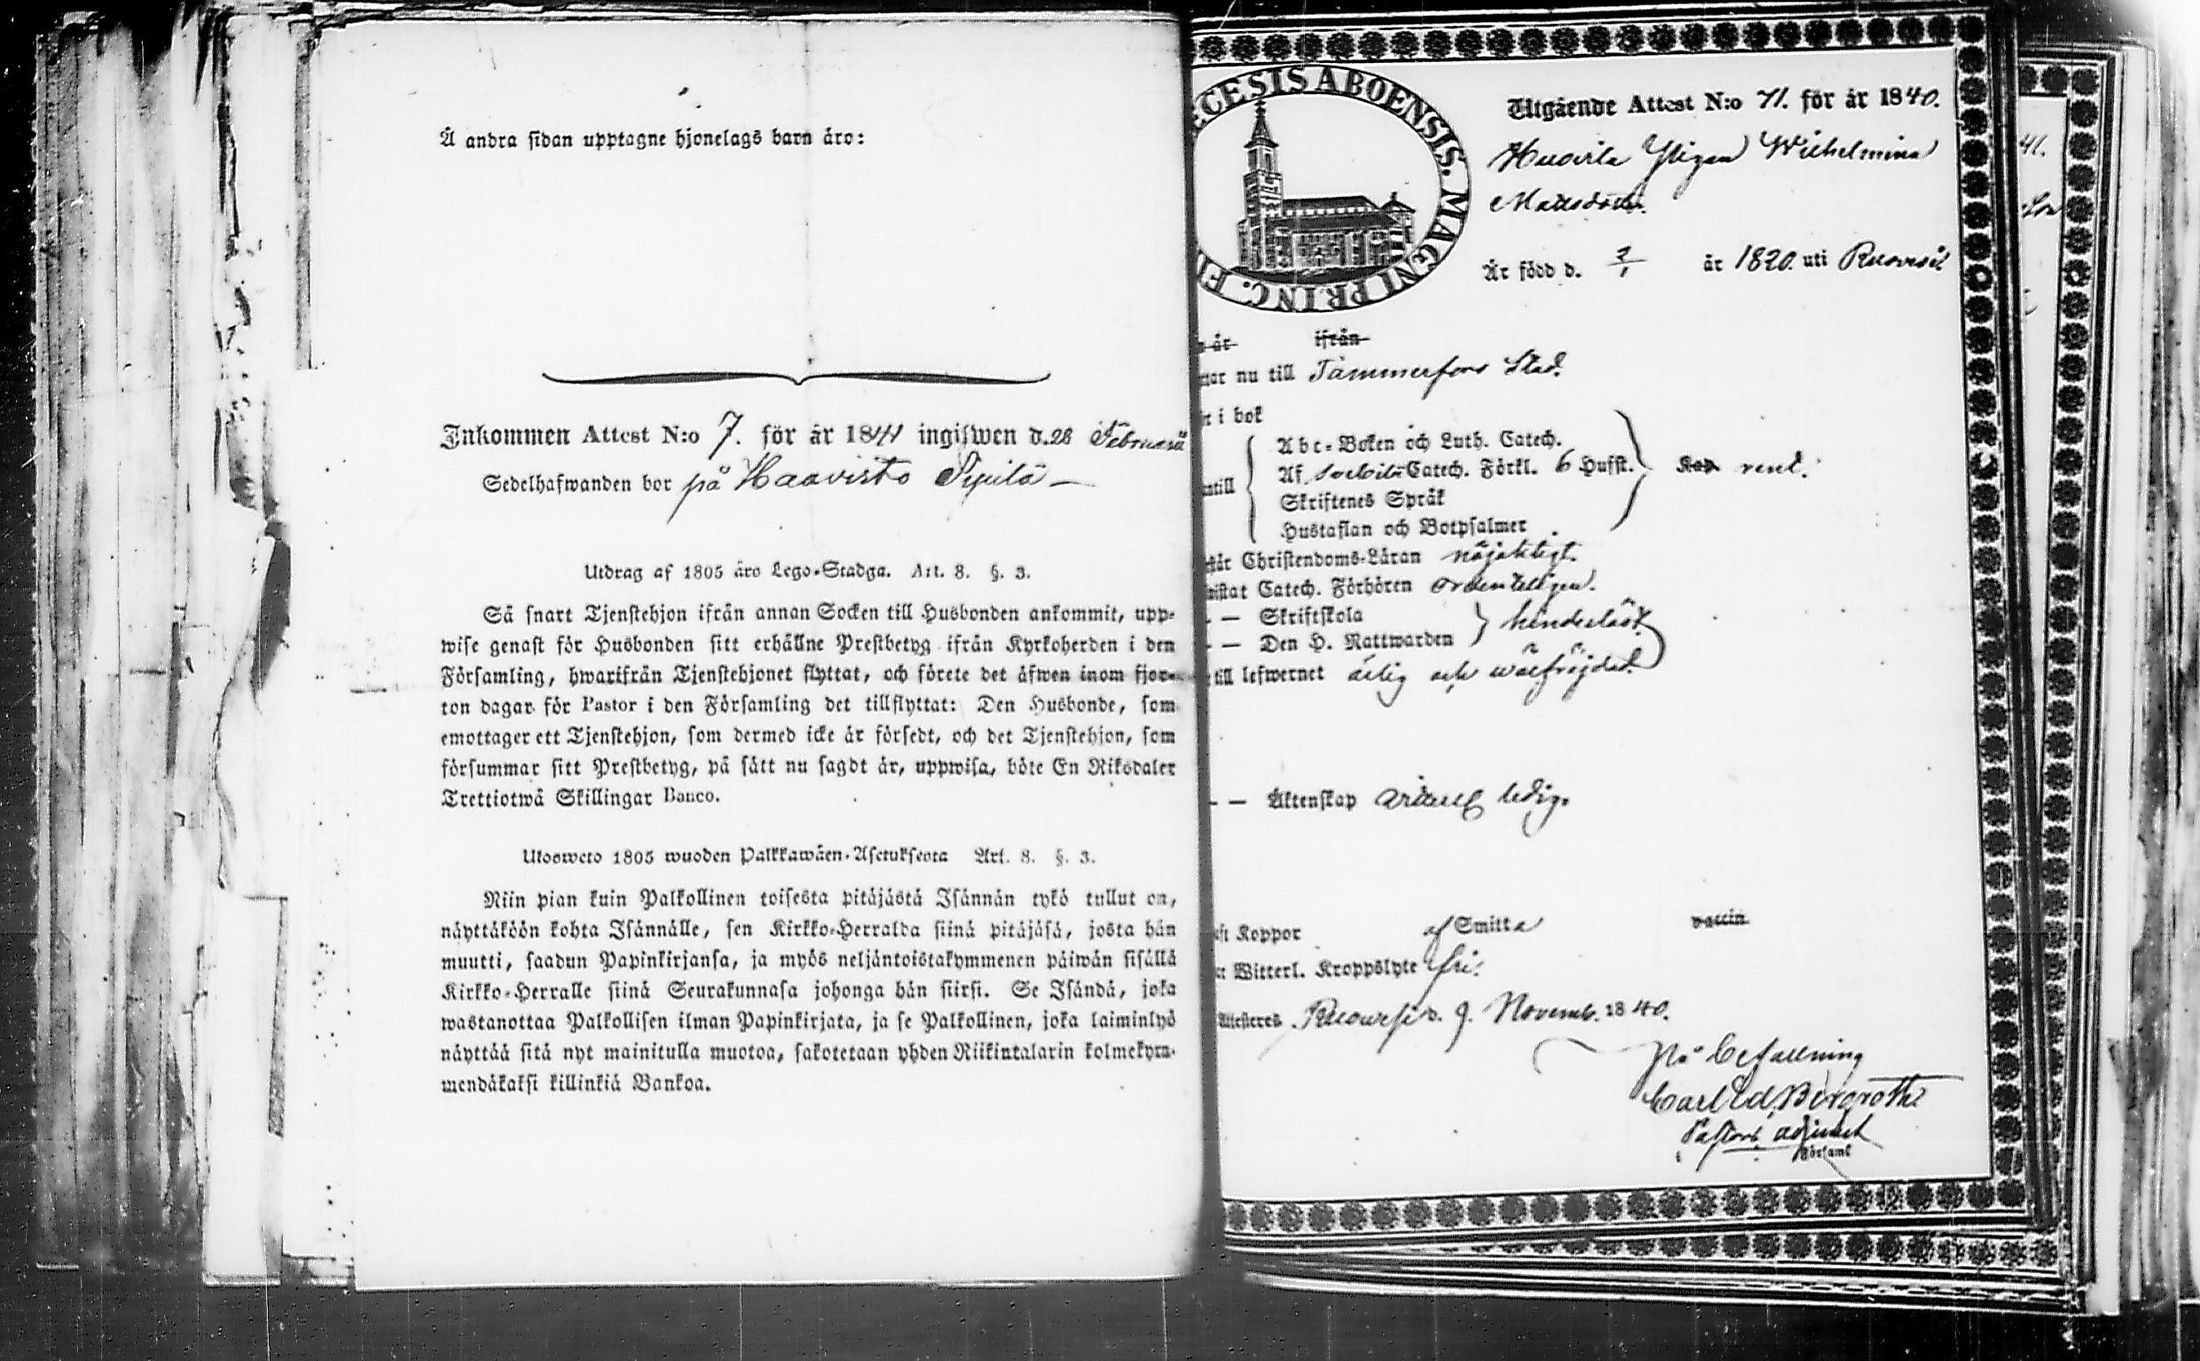 Å andra sidan upptagne hjonelags barn äro:
Inkommen Attest N:o 7. för år 1841 ingifwen d. 28 Februarii
Sedelhafwanden bor på Haavisto Sipilä —
Utdrag af 1805 års Lego-Stadga. Art. 8. §. 3.
Så snart Tjenstehjon ifrån annan Socken till Husbonden ankommit, upp-
wise genast för Husbonden sitt erhållne Prestbetyg ifrån Kyrkoherden i den
Församling, hwarifrån Tjenstehjonet flyttat, och förete det äfwen inom fjor-
ton dagar för Pastor i den Församling det tillflyttat: Den Husbonde, som
emottager ett Tjenstehjon, som dermed icke är försedt, och det Tjenstehjon, som
försummar sitt Prestbetyg, på sätt nu sagdt är, uppwisa, böte En Riksdaler
Trettiotwå Skillingar Banco.
Ulosweto 1805 wuoden Palkkawäen-Asetuksesta Art. 8. §. 3.
Niin pian kuin Palkollinen toisesta pitäjästä Isännän tykö tullut on,
näyttäköön kohta Isännälle, sen Kirkko-Herralda siinä pitäjäsä, josta hän
muutti, saadun Papinkirjansa, ja myös neljäntoistakymmenen päiwän sisällä
Kirkko-Herralle siinä Seurakunnasa johonga hän siirsi. Se Isändä, joka
wastanottaa Palkollisen ilman Papinkirjata, ja se Palkollinen, joka laiminlyö
näyttää sitä nyt mainitulla muotoa, sakotetaan yhden Riikintalarin kolmekym-
mendäkaksi killinkiä Bankoa.
CESIS ABOENSIS. MAGNI PRINC. FI
Utgående Attest N:o 71. för år 1840.
Huovila Pigan Wilhelmina
Mattsdotter.
Är född d. 2/1 år 1820. uti Ruovesi
år ifrån
nu till Tammerfors Stad.
i bok
Abc-Boken och Luth. Catech.
Af Svebilii Catech. Förkl. 6 Hufst. rent.
Skriftenes Språk
Hustaflan och Botpsalmer
Christendoms-Läran nöjaktigt.
Catech. Förhören ordenteligen.
— Skriftskola
— Den H. Nattwarden } hinderlöst
till lefwernet ärlig och wälfrejdad.
— — Äktenskap ledig.
Koppor af Smitta vaccin
Witterl. Kroppslyte fri.
Attesteres Ruovesi d. 9. Novemb. 1840.
På befallning
Carl Ed. Bergroth
Pastors adjunct
i Församl
41.